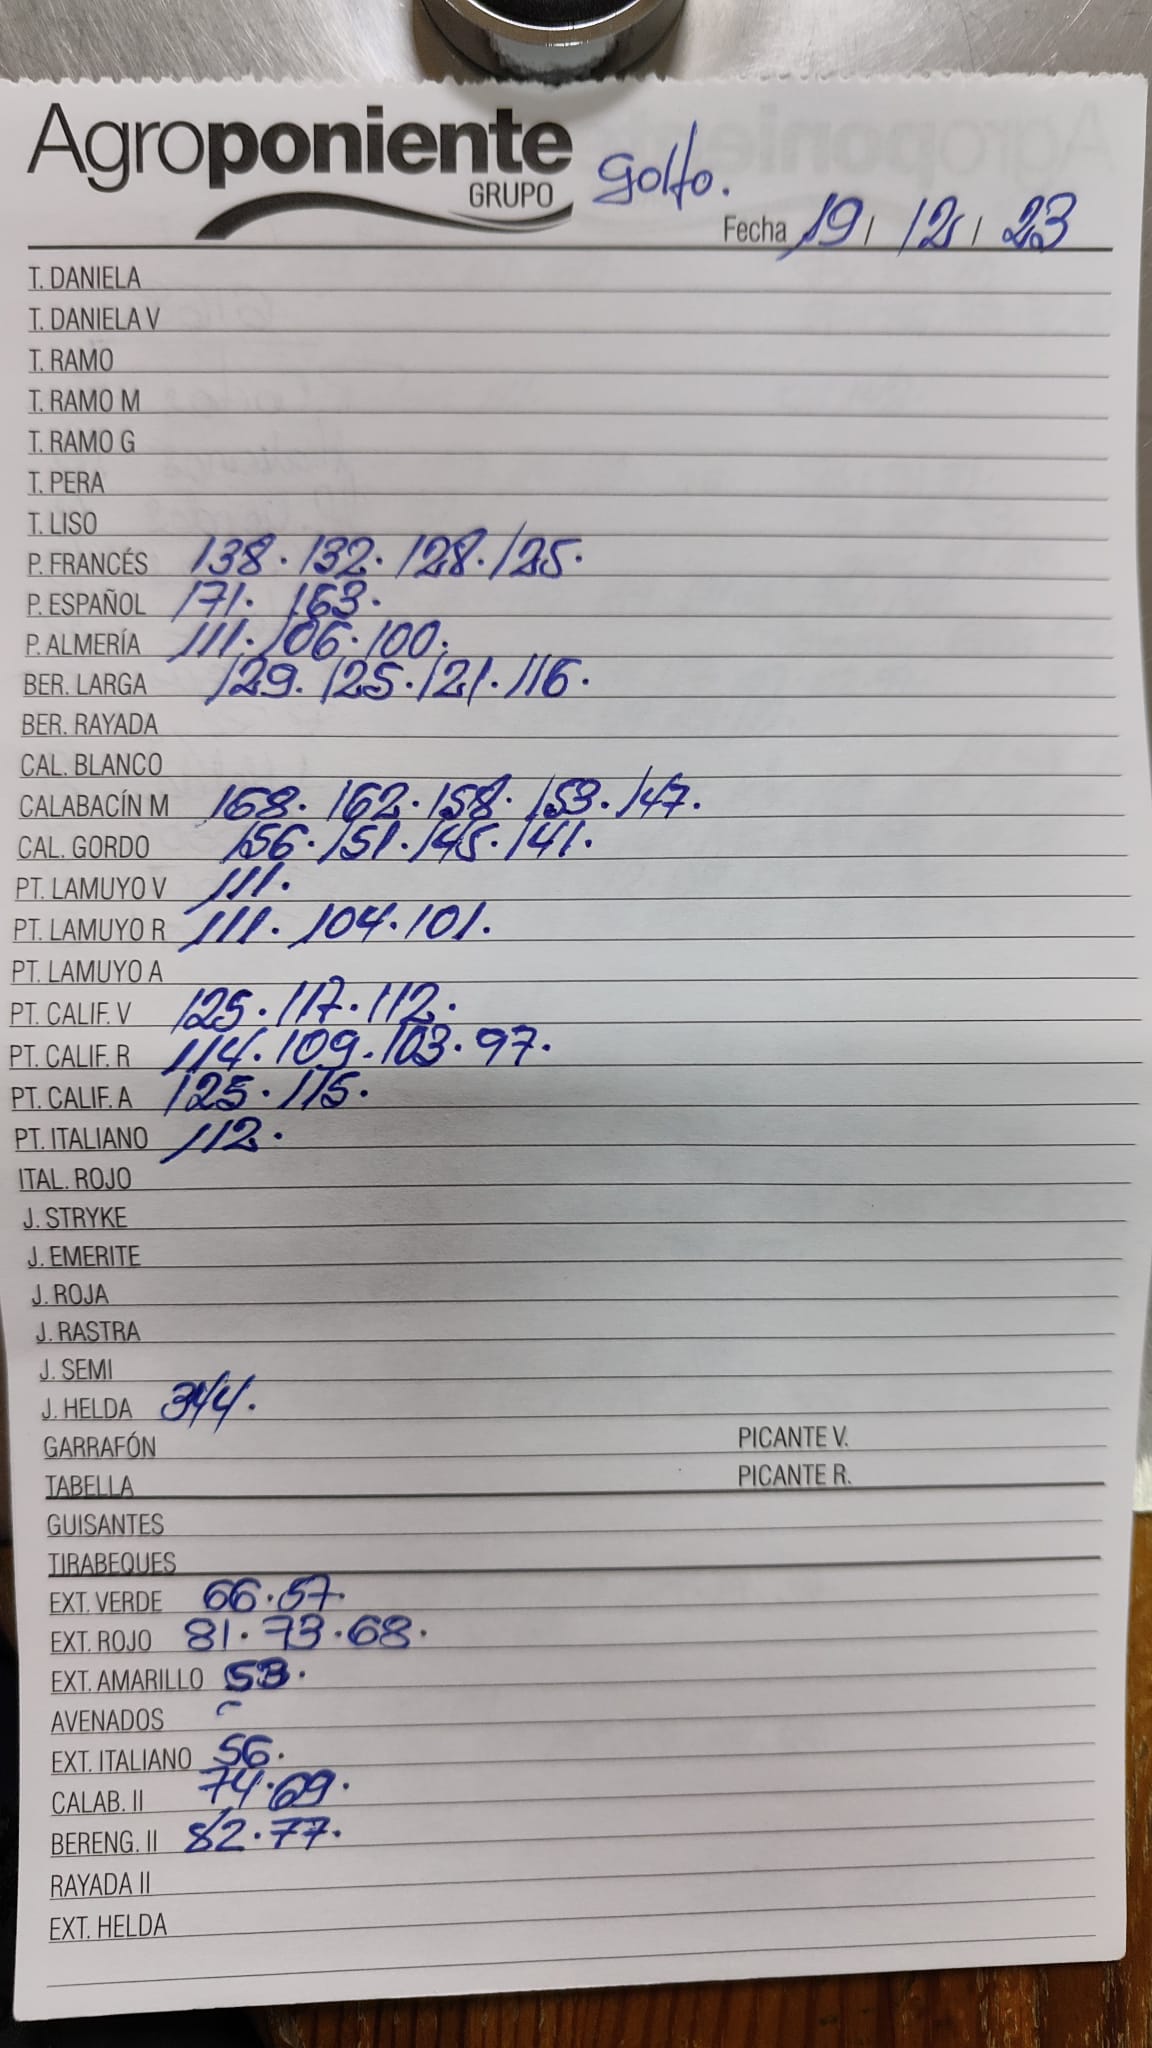 Agroponiente
GRUPO
Golfo.
Fecha 19 / 12 / 23
T. DANIELA
T. DANIELA V
T. RAMO
T. RAMO M
T. RAMO G
T. PERA
T. LISO
P. FRANCÉS 138. 132. 128. 125.
P. ESPAÑOL 171. 163.
P. ALMERÍA 111. 106. 100.
BER. LARGA 129. 125. 121. 116.
BER. RAYADA
CAL. BLANCO
CALABACÍN M 168. 162. 158. 153. 147.
CAL. GORDO 156. 151. 145. 141.
PT. LAMUYO V 111.
PT. LAMUYO R 111. 104. 101.
PT. LAMUYO A
PT. CALIF. V 125. 117. 112.
PT. CALIF. R 114. 109. 103. 97.
PT. CALIF. A 125. 115.
PT. ITALIANO 112.
ITAL. ROJO
J. STRYKE
J. EMERITE
J. ROJA
J. RASTRA
J. SEMI
J. HELDA 344.
GARRAFÓN PICANTE V.
TABELLA PICANTE R.
GUISANTES
TIRABEQUES
EXT. VERDE 66. 57.
EXT. ROJO 81. 73. 68.
EXT. AMARILLO 53.
AVENADOS
EXT. ITALIANO 56.
CALAB. II 74. 69.
BERENG. II 82. 77.
RAYADA II
EXT. HELDA